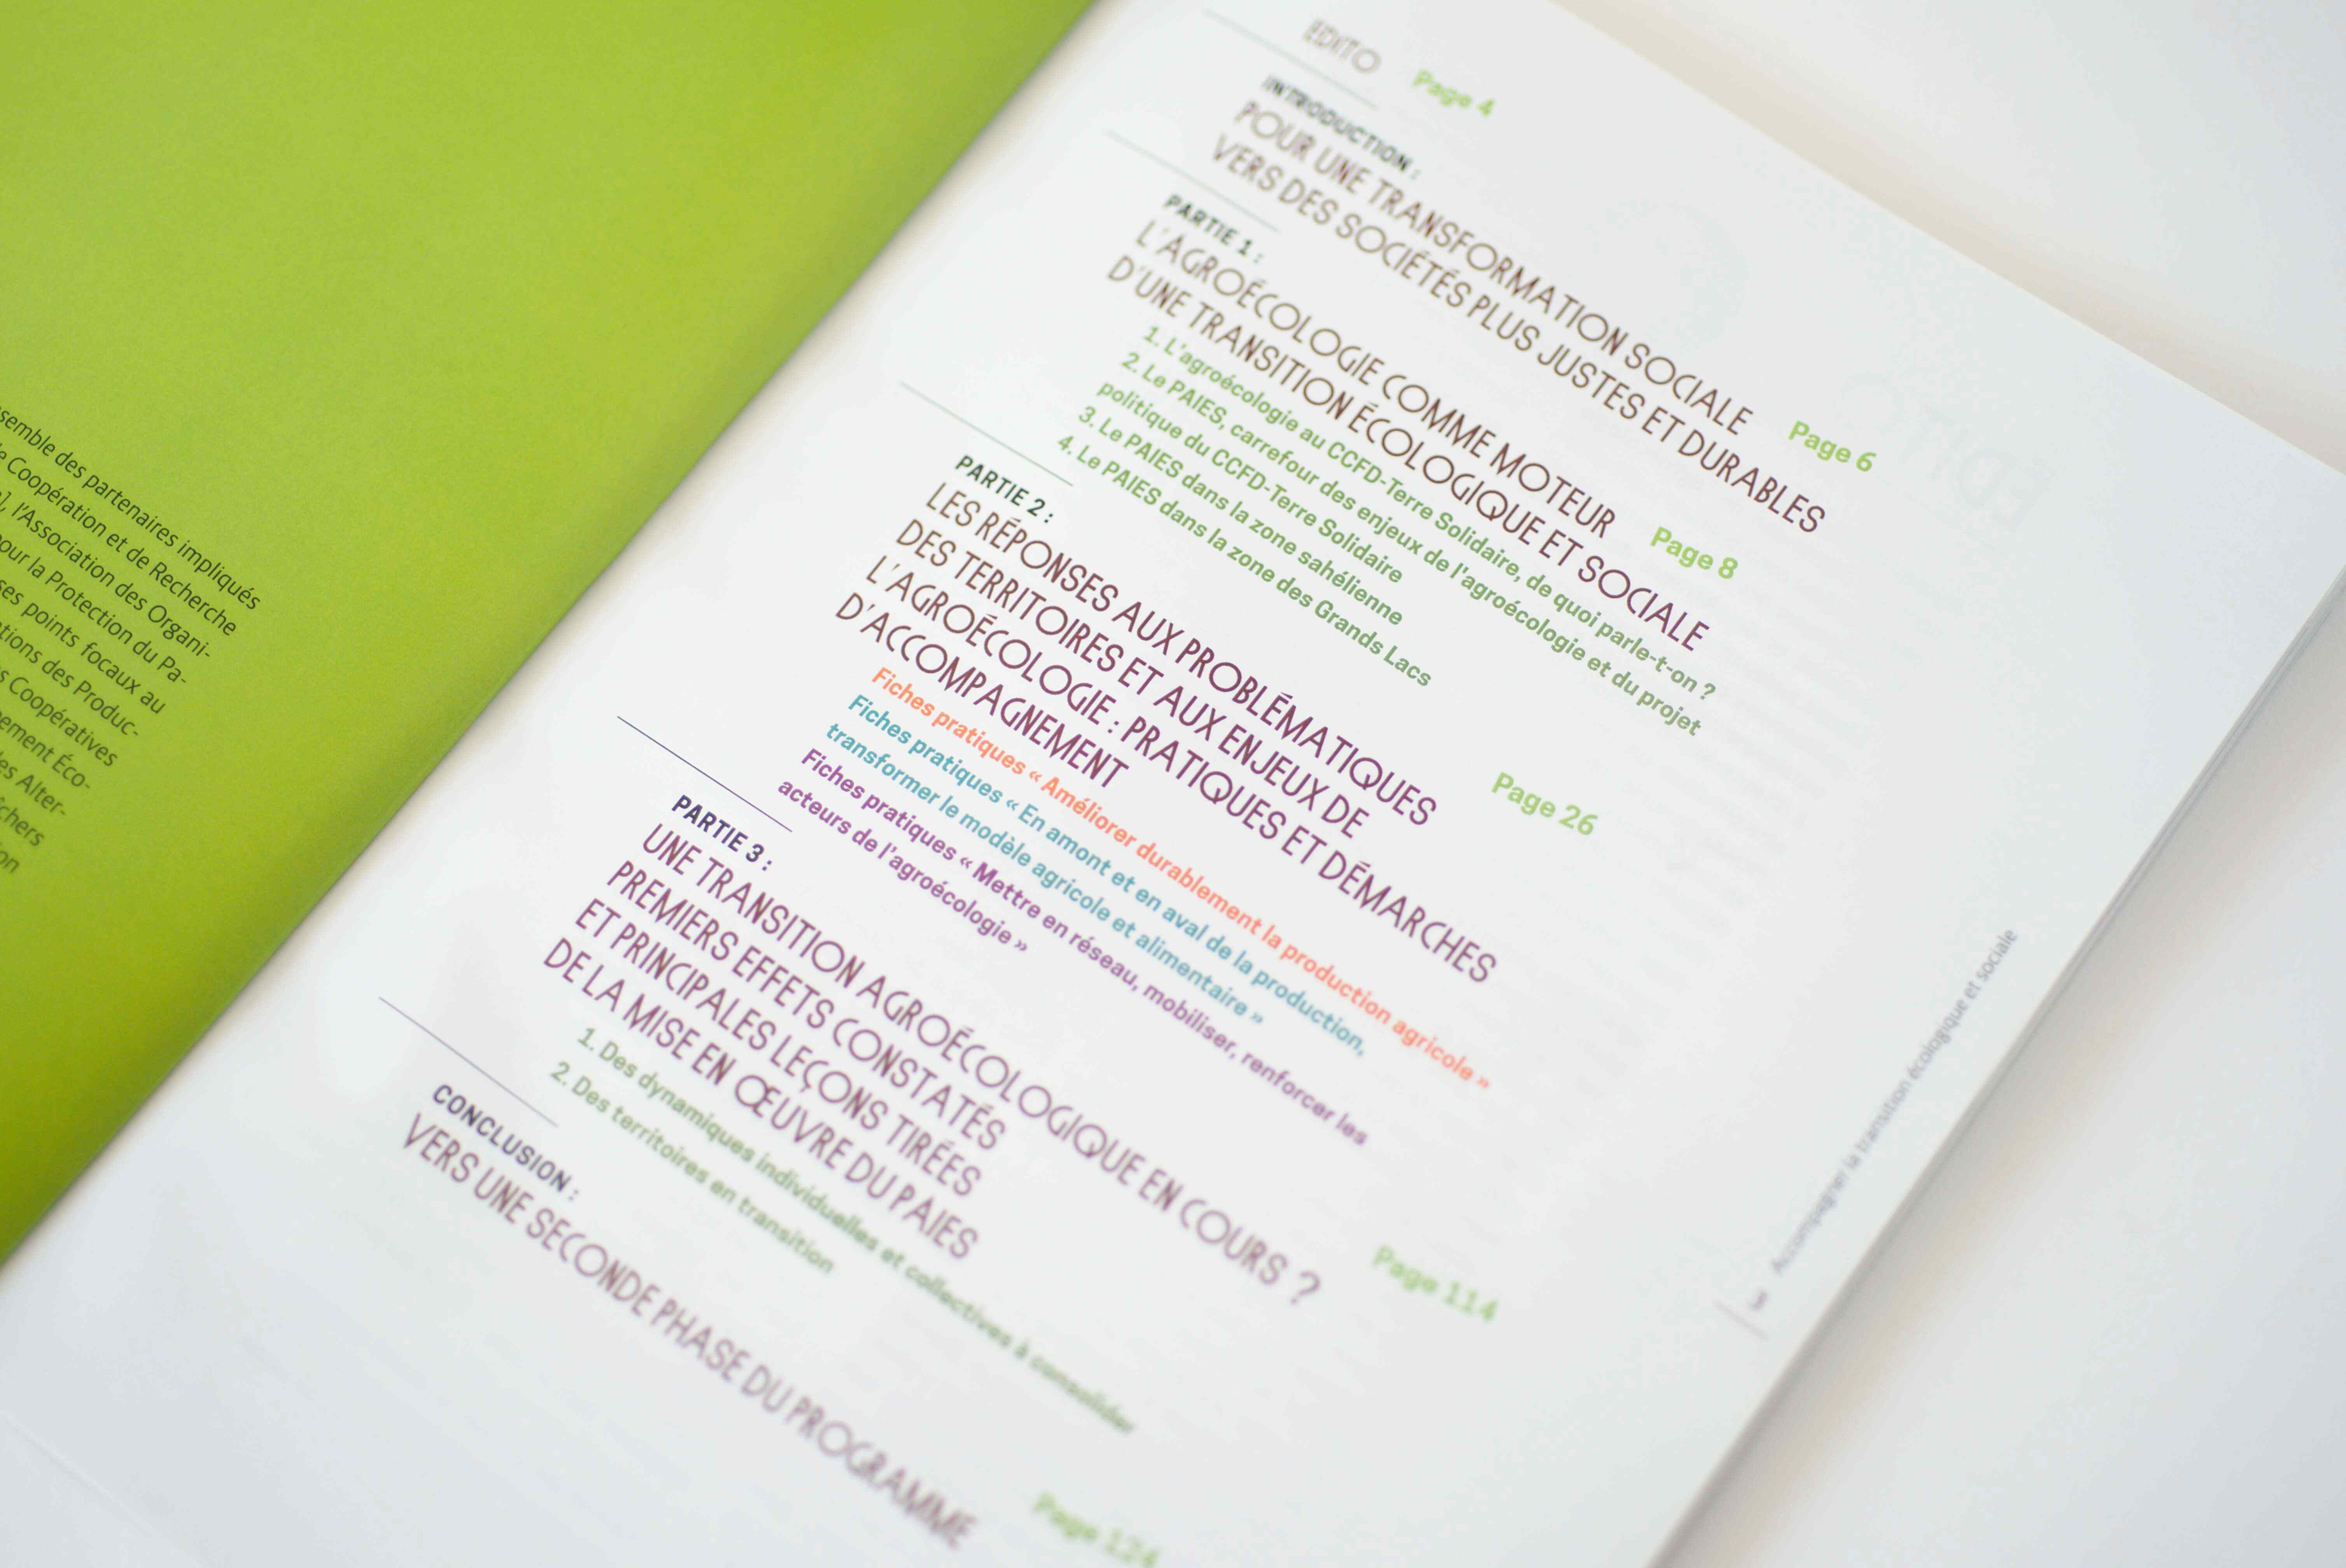 semble des partenaires impliqués
e Coopération et de Recherche
, l'Association des Organi-
our la Protection du Pa-
es points focaux au
tions des Produc-
s Coopératives
ement Éco-
es Alter-
chers
on
EDITO Page 4
INTRODUCTION :
POUR UNE TRANSFORMATION SOCIALE Page 6
VERS DES SOCIÉTÉS PLUS JUSTES ET DURABLES
PARTIE 1 :
L'AGROÉCOLOGIE COMME MOTEUR Page 8
D'UNE TRANSITION ÉCOLOGIQUE ET SOCIALE
1. L'agroécologie au CCFD-Terre Solidaire, de quoi parle-t-on ?
2. Le PAIES, carrefour des enjeux de l'agroécologie et du projet
politique du CCFD-Terre Solidaire
3. Le PAIES dans la zone sahélienne
4. Le PAIES dans la zone des Grands Lacs
PARTIE 2 :
LES RÉPONSES AUX PROBLÉMATIQUES Page 26
DES TERRITOIRES ET AUX ENJEUX DE
L'AGROÉCOLOGIE : PRATIQUES ET DÉMARCHES
D'ACCOMPAGNEMENT
Fiches pratiques « Améliorer durablement la production agricole »
Fiches pratiques « En amont et en aval de la production,
transformer le modèle agricole et alimentaire »
Fiches pratiques « Mettre en réseau, mobiliser, renforcer les
acteurs de l'agroécologie »
PARTIE 3 :
UNE TRANSITION AGROÉCOLOGIQUE EN COURS ? Page 114
PREMIERS EFFETS CONSTATÉS
ET PRINCIPALES LEÇONS TIRÉES
DE LA MISE EN ŒUVRE DU PAIES
1. Des dynamiques individuelles et collectives à consolider
2. Des territoires en transition
CONCLUSION :
VERS UNE SECONDE PHASE DU PROGRAMME Page 124
3 Accompagner la transition écologique et sociale